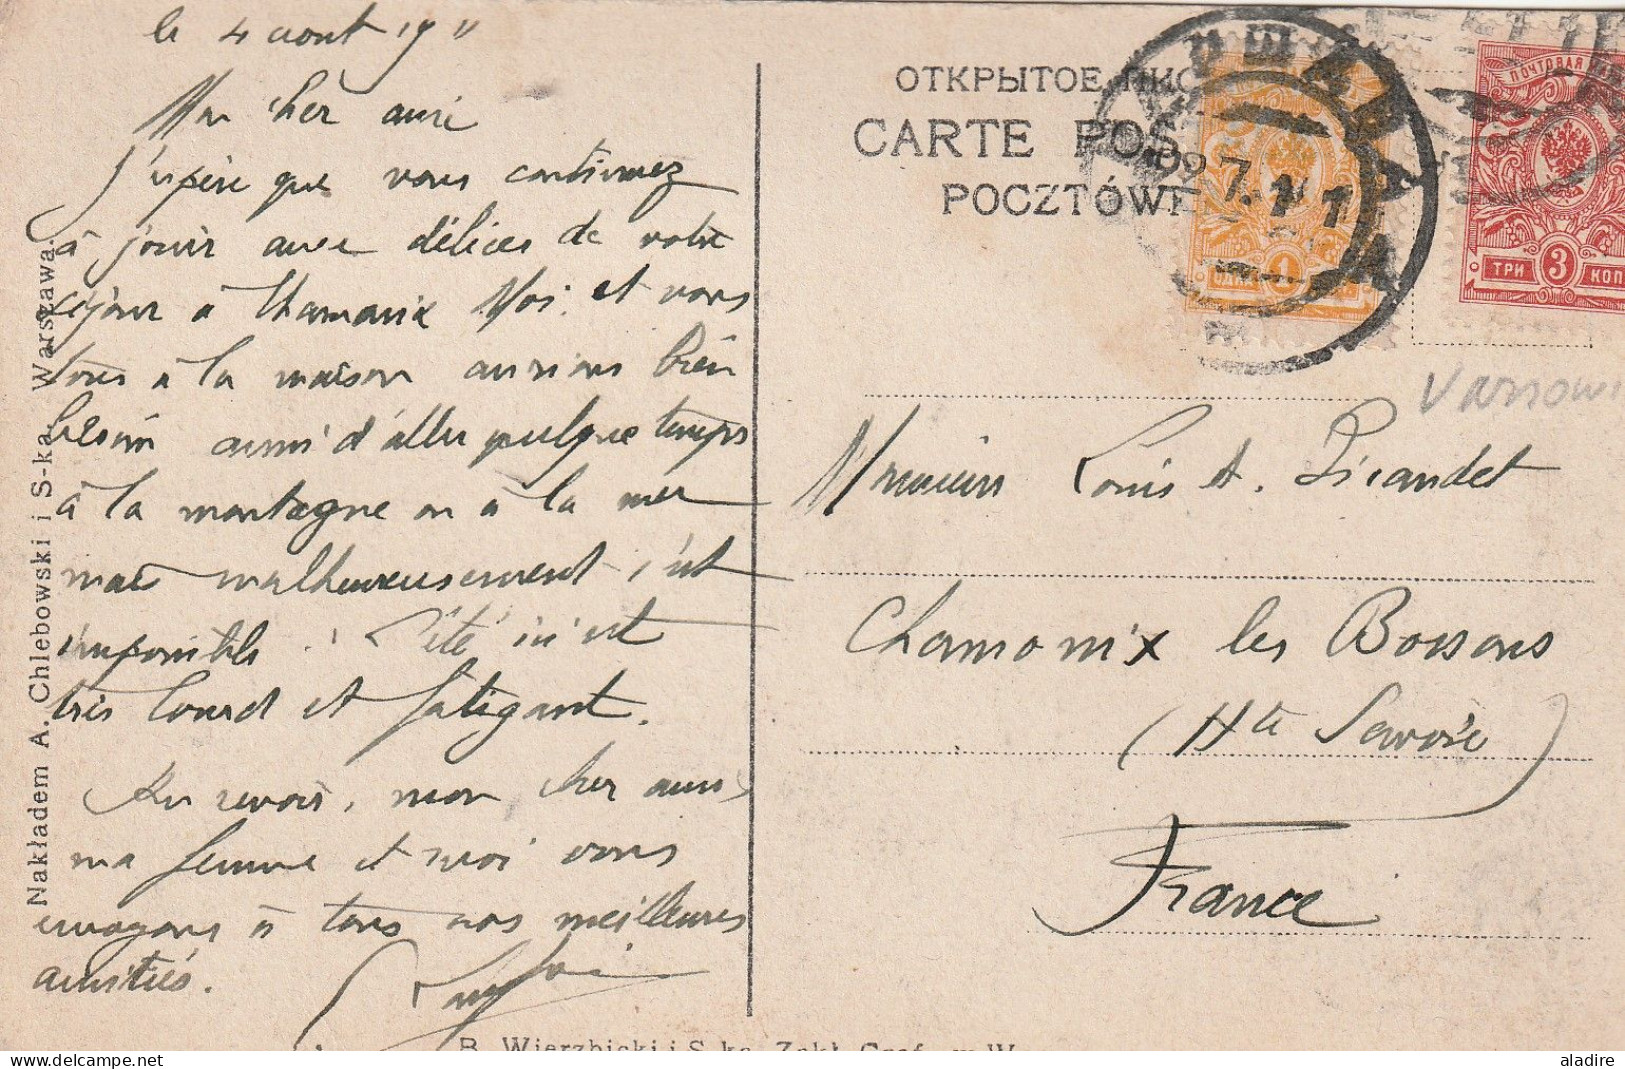 le 4 aout 1911
Mon cher ami
J'espère que vous continuez
à jouir avec délices de votre
séjour à Chamonix Moi et nous
tous à la maison aurions bien
besoin aussi d'aller quelque temps
à la montagne ou à la mer
mais malheureusement c'est
impossible. L'été ici est
très lourd et fatigant.
Au revoir, mon cher ami,
ma femme et moi vous
envoyons à tous nos meilleures
amitiés.
Nakładem A. Chlebowski i S-ka Warszawa.
B. Wierzbicki i S-ka, Zakł. Graf. w W
ОТКРЫТОЕ ПИС
CARTE POS
POCZTÓWK
22 7. 11
ПОЧТОВАЯ
ТРИ 3 КОП
1
Varsowi
Monsieur Louis A. Picandet
Chamonix les Bossons
(Hte Savoie)
France
aladire